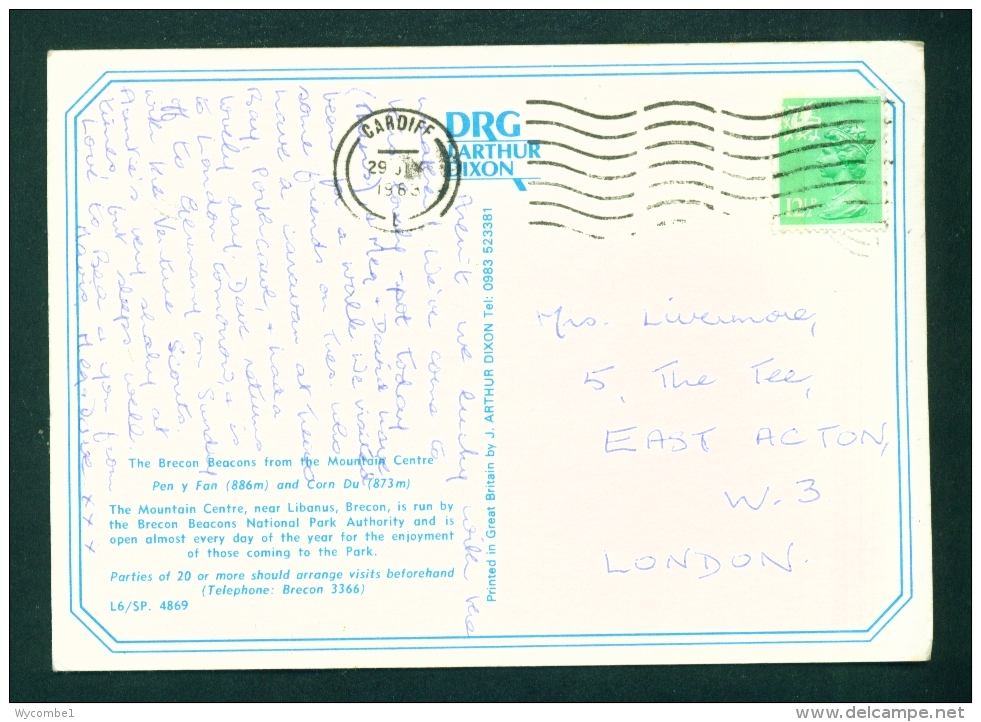 CARDIFF
29
1983
L
DRG
J.ARTHUR
DIXON
12½P
Aren't we lucky with the
weather! We've come to
lovely spot today
(Mavis) & Meg & Dave have
been for a walk. We visited
some friends on Tues. who
have a caravan at Trecco
Bay, Porthcawl, & had a
lovely day. Dave returns
to London tomorrow, & is
off to Germany on Sunday
with the Venture Scouts.
Auntie's very shaky at
times, but sleeps well.
Love to Bea & you from
Mavis, Meg & Dave x x x
Mrs. Livermore,
5, The Tee,
EAST ACTON,
W.3
LONDON.
Printed in Great Britain by J. ARTHUR DIXON Tel: 0983 523381
The Brecon Beacons from the Mountain Centre
Pen y Fan (886m) and Corn Du (873m)
The Mountain Centre, near Libanus, Brecon, is run by
the Brecon Beacons National Park Authority and is
open almost every day of the year for the enjoyment
of those coming to the Park.
Parties of 20 or more should arrange visits beforehand
(Telephone: Brecon 3366)
L6/SP. 4869
Wycombe1
www.delcampe.net